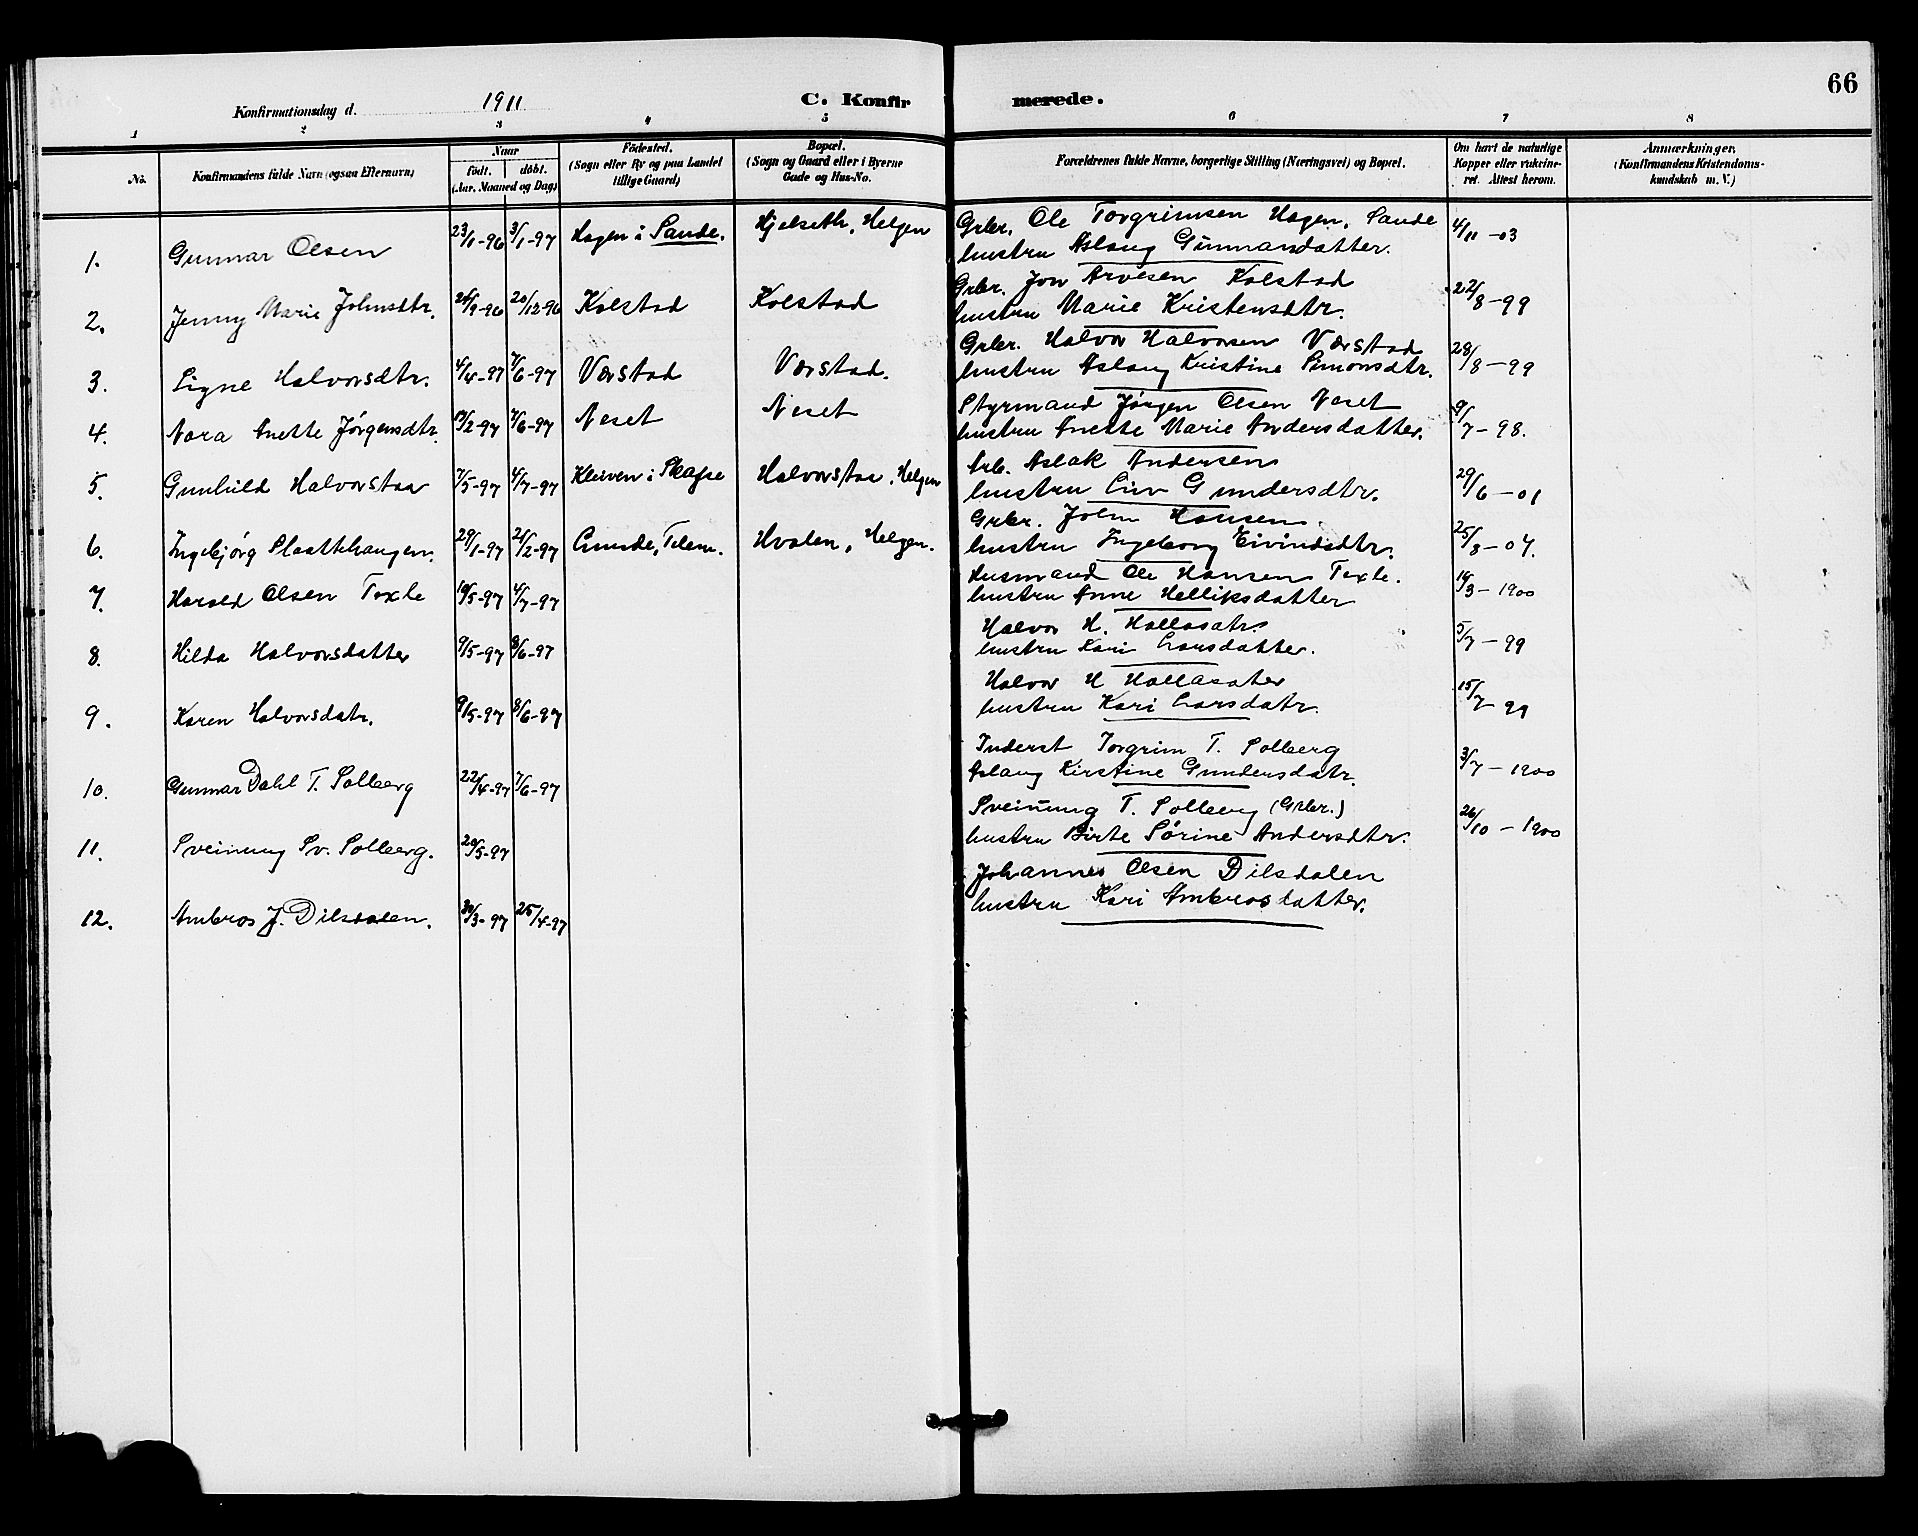 66
Konfirmationsdag d. 1911 C. Konfirmerede.
1 2 3 4 5 6 7 8
No.
Konfirmandens fulde Navn (ogsaa Efternavn)
Naar
født. døbt.
(Aar, Maaned og Dag)
Fødested.
(Sogn eller By og paa Landet
tillige Gaard)
Bopæl.
(Sogn og Gaard eller i Byerne
Gade og Hus-No.
Forældrenes fulde Navne, borgerlige Stilling (Næringsvei) og Bopæl.
Om havt de naturlige
Kopper eller vakcine-
ret. Attest herom.
Anmærkninger,
(Konfirmandens Kristendoms-
kundskab m. V.)
1. Gunnar Olsen 23/1-96 3/1-97 Hagen i Sande. Hjelseth, Helgen
Grbr. Ole Torgrimsen Hagen, Sande
hustru Aslaug Gunnarsdatter. 4/11-03
2. Jenny Marie Johnsdtr. 20/12-96 Kolstad Kolstad
Grbr. Jon Arvesen Kolstad
hustru Marie Kristensdtr. 22/8-99
3. Signe Halvorsdtr. 4/4-97 7/6-97 Værstad Værstad.
Grbr. Halvor Halvorsen Værstad
hustru Aslaug Kristine Simonsdtr. 28/8-99
4. Nora Anette Jørgensdtr. 7/6-97 Neset Neset
Styrmand Jørgen Olsen Neset
hustru Anette Marie Andersdatter. 9/7-98.
5. Gunhild Halvorstaa 7/5-97 4/7-97 Kleiven i Skafse Halvorstaa, Helgen
Arb. Aslak Andersen
hustru Liv Gundersdtr. 29/6-01
6. Ingebjørg Slaatthaugen. 29/1-97 21/2-97 Lunde, Telem. Hvalen, Helgen.
Grbr. John Hansen.
hustru Ingeborg Eivindsdtr. 25/8-04.
7. Harald Olsen Texle 4/7-97
Husmand Ole Hansen Texle.
hustru Anne Helliksdatter 19/3-1900
8. Hilda Halvorsdatter 9/5-97 8/6-97
Halvor H. Hollasætr.
hustru Kari Larsdatter. 5/7-99
9. Karen Halvorsdatr. 9/5-97 8/6-97
Halvor H Hollasæter
hustru Kari Larsdatr. 15/7-99
10. Gunnar Dahl T. Solberg 22/4-97 7/6-97
Inderst Torgrim T. Solberg
Aslaug Kirstine Gundersdatr. 3/7-1900
11. Sveinung Sv. Solberg. 20/5-97
Sveinung T. Solberg (Grbr.)
hustru Birte Sørine Andersdtr. 26/10-1900
12. Ambros J. Dilsdalen. 30/3-97 25/4-97
Johannes Olsen Dilsdalen
hustru Kari Ambrosdatter.